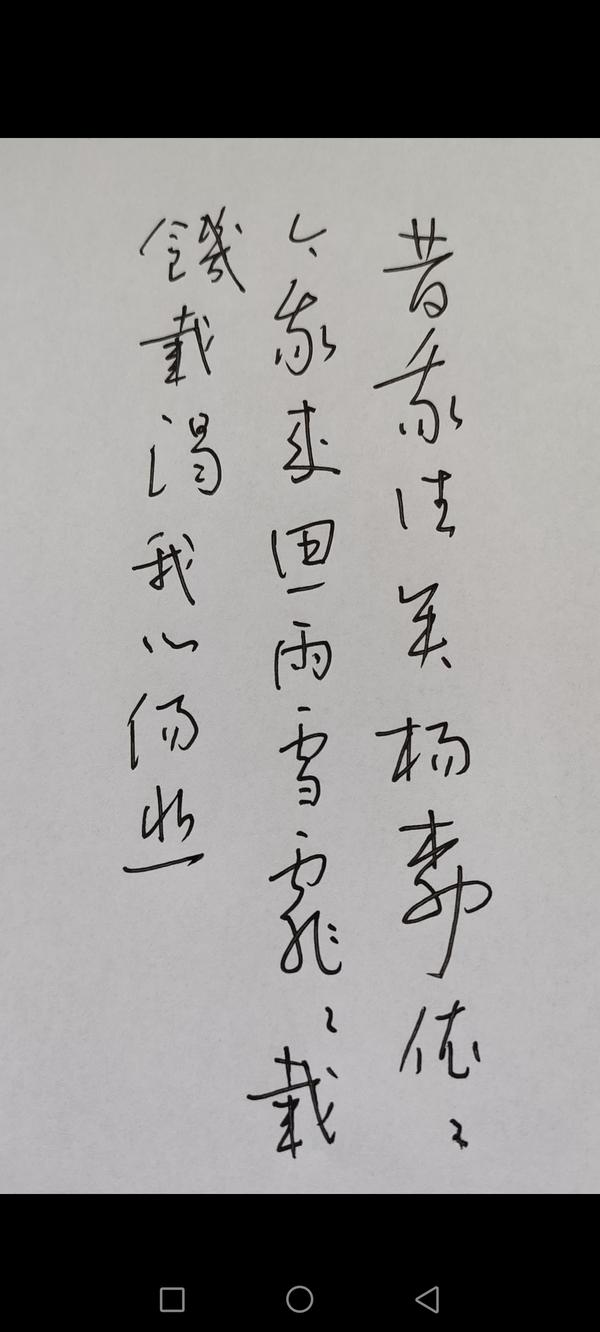 昔我往矣杨柳依々
今我来思雨雪霏々载
饑载渴我心伤悲